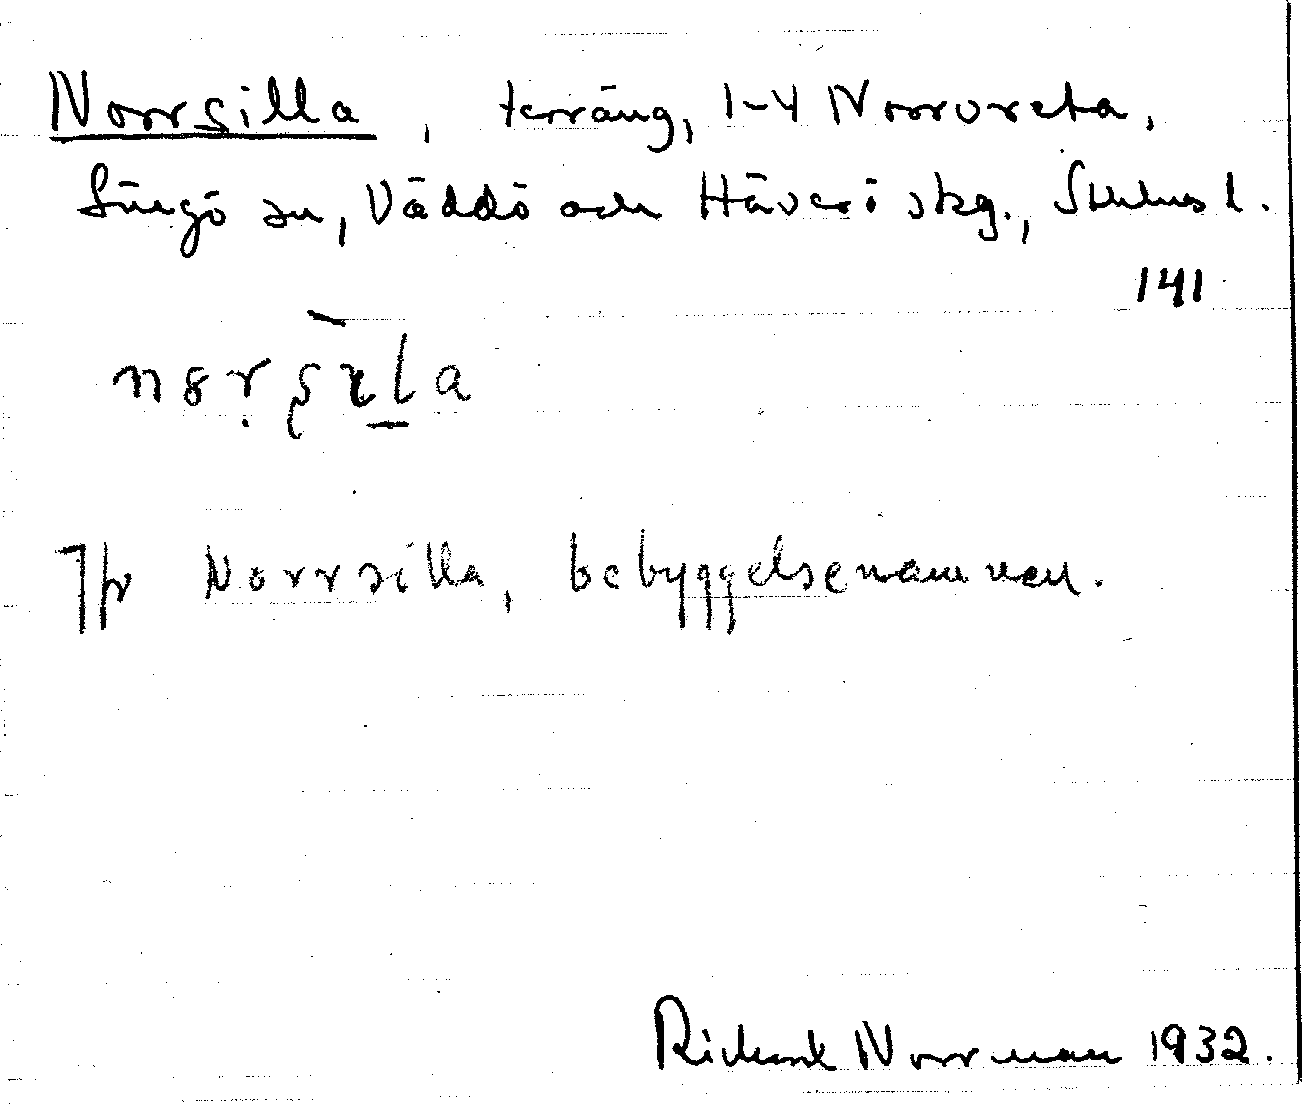 Norrsilla, terräng, 1-4 Norrvreta,
Singö sn, Väddö och Häverö skg., Sthlms l.
141
Jfr Norrsilla, bebyggelsenamnen.
Richard Norrman 1932.